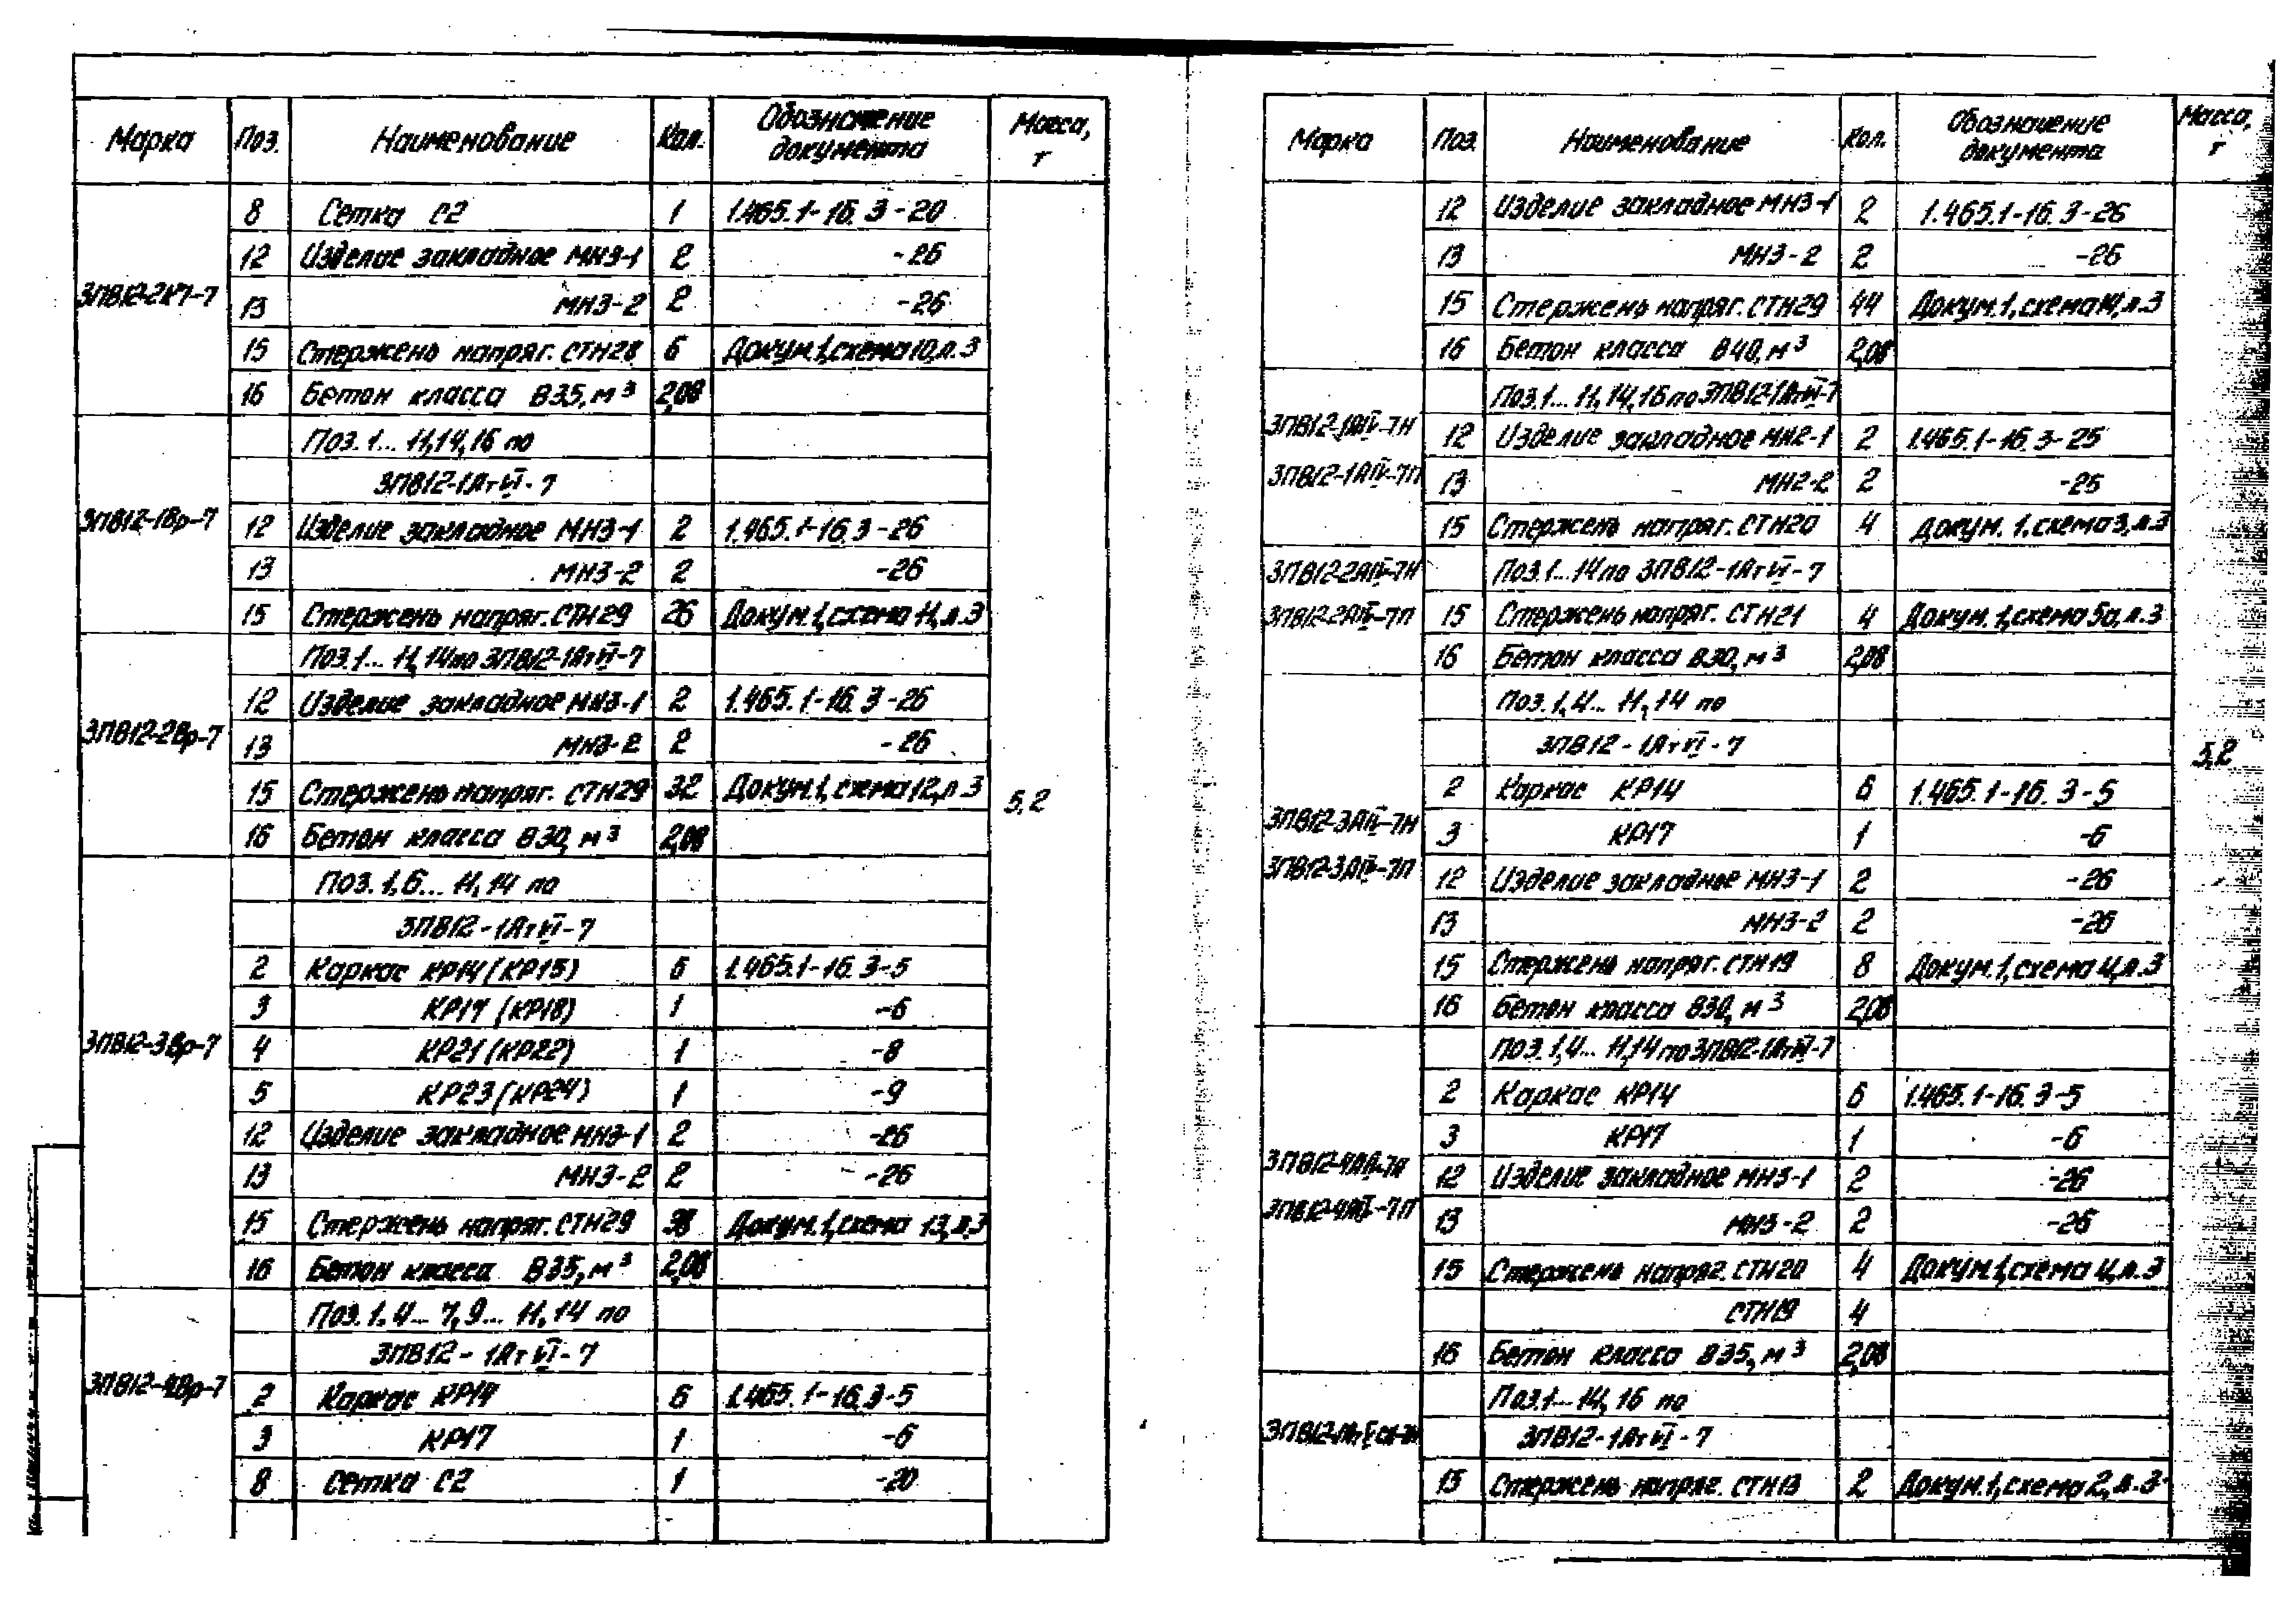 Марка Поз. Наименование Кол. Обозначение документа Масса, т
8 Сетка С2 1 1.465.1-16.3-20
12 Изделие закладное МН3-1 2 -26
3ПВ12-2К7-7 13 МН3-2 2 -26
15 Стержень напряг. СТН28 6 Докум.1, схема 10, л.3
16 Бетон класса В35, м³ 2,08
Поз. 1... 11, 14, 16 по
3ПВ12-1АтVI-7
3ПВ12-1Вр-7 12 Изделие закладное МН3-1 2 1.465.1-16.3-26
13 МН3-2 2 -26
15 Стержень напряг. СТН29 26 Докум.1, схема 11, л.3
Поз. 1... 11, 14 по 3ПВ12-1АтVI-7
12 Изделие закладное МН3-1 2 1.465.1-16.3-26
3ПВ12-2Вр-7 13 МН3-2 2 -26
15 Стержень напряг. СТН29 32 Докум.1, схема 12, л.3 5,2
16 Бетон класса В30, м³ 2,08
Поз. 1, 6... 11, 14 по
3ПВ12-1АтVI-7
2 Каркас КР14 (КР15) 6 1.465.1-16.3-5
3 КР17 (КР18) 1 -6
3ПВ12-3Вр-7 4 КР21 (КР22) 1 -8
5 КР23 (КР24) 1 -9
12 Изделие закладное МН3-1 2 -26
13 МН3-2 2 -26
15 Стержень напряг. СТН29 38 Докум.1, схема 13, л.3
16 Бетон класса В35, м³ 2,08
Поз. 1, 4... 7, 9... 11, 14 по
3ПВ12-1АтVI-7
3ПВ12-4Вр-7 2 Каркас КР14 6 1.465.1-16.3-5
3 КР17 1 -6
8 Сетка С2 1 -20
Марка Поз. Наименование Кол. Обозначение документа Масса, т
12 Изделие закладное МН3-1 2 1.465.1-16.3-26
13 МН3-2 2 -26
15 Стержень напряг. СТН29 44 Докум.1, схема 14, л.3
16 Бетон класса В40, м³ 2,08
Поз. 1... 11, 14, 16 по 3ПВ12-1АтVI-7
3ПВ12-1АIV-7Н 12 Изделие закладное МН2-1 2 1.465.1-16.3-25
3ПВ12-1АIV-7П 13 МН2-2 2 -25
15 Стержень напряг. СТН20 4 Докум. 1, схема 3, л.3
3ПВ12-2АIV-7Н Поз. 1... 14 по 3ПВ12-1АтVI-7
3ПВ12-2АIV-7П 15 Стержень напряг. СТН21 4 Докум. 1, схема 5а, л.3
16 Бетон класса В30, м³ 2,08
Поз. 1, 4... 11, 14 по
3ПВ12-1АтVI-7 5,2
2 Каркас КР14 6 1.465.1-16.3-5
3ПВ12-3АIV-7Н 3 КР17 1 -6
3ПВ12-3АIV-7П 12 Изделие закладное МН3-1 2 -26
13 МН3-2 2 -26
15 Стержень напряг. СТН19 8 Докум.1, схема 4, л.3
16 Бетон класса В30, м³ 2,08
Поз. 1, 4... 11, 14 по 3ПВ12-1АтVI-7
2 Каркас КР14 6 1.465.1-16.3-5
3 КР17 1 -6
3ПВ12-4АIV-7Н 12 Изделие закладное МН3-1 2 -26
3ПВ12-4АIV-7П 13 МН3-2 2 -26
15 Стержень напряг. СТН20 4 Докум.1, схема 4, л.3
СТН19 4
16 Бетон класса В35, м³ 2,08
Поз. 1... 14, 16 по
3ПВ12-1АтVI-7
15 Стержень напряг. СТН13 2 Докум.1, схема 2, л.3